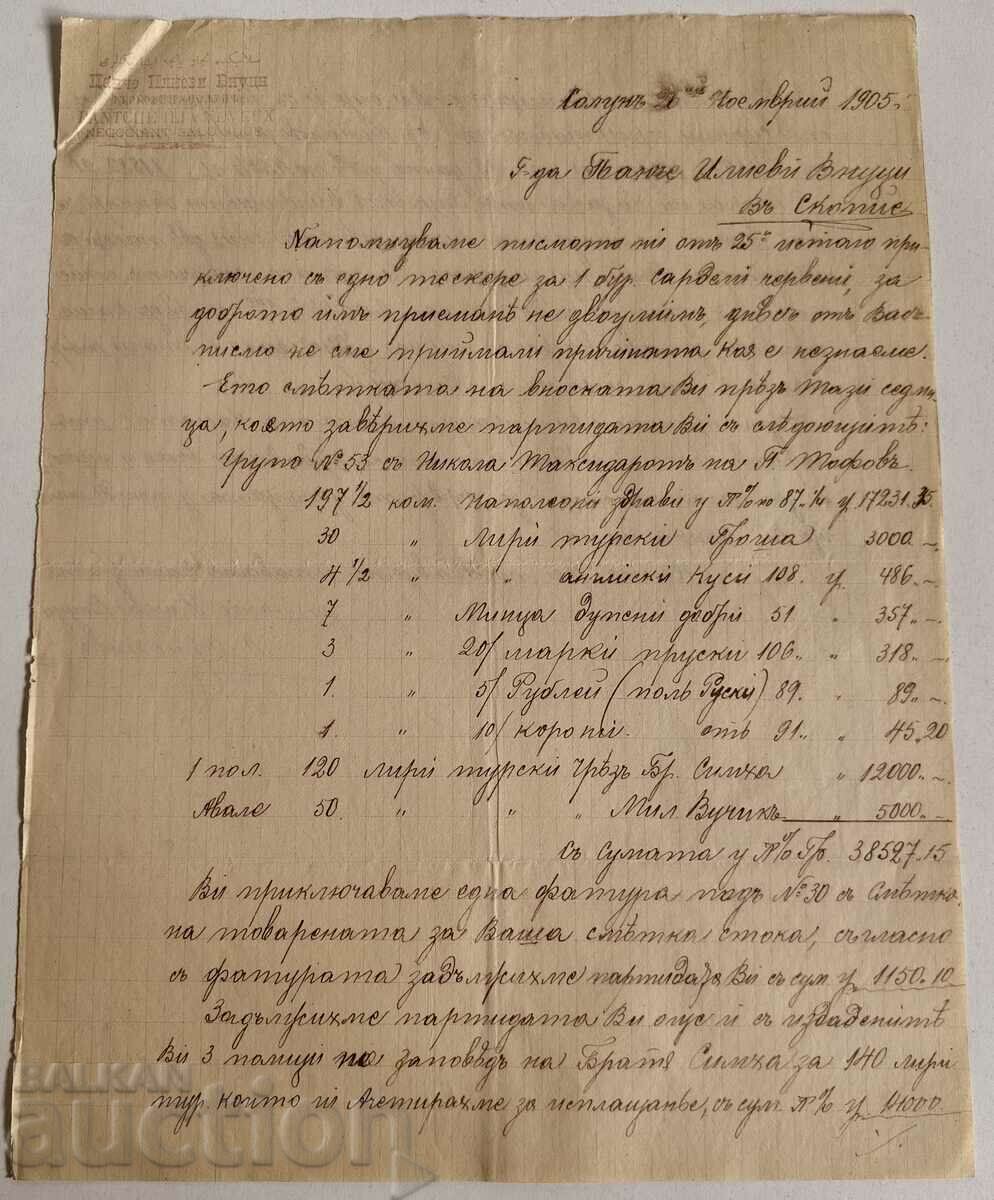 Панче Илиеви Внуци
PANTCHE ILI NEVEUX
NEGOCIANT SALONIQUE
Солунъ Ноемврий 1905.
Г-да Панче Илиеви Внуци
Въ Скопие
Напомнуваме писмото ни отъ 25й истаго при-
ключено съ едно тескере за 1 бур. Сардели червени, за
доброто имъ приемание не двоумимъ, днесь отъ Ваше
писмо не сме приймали причината коя е незнаеме.
Ето смѣтката на вноската Ви прѣзъ тази седми
ца, която завѣрихме партидата Ви съ слѣдующитѣ:
Група № 53 съ Никола Таксидаротъ на П. Тофовъ.
197 1/2 ком. Наполеони здрави у 87. 1/4 17231.35.
30 „ Лири турски Гроша 3000 —.
4 1/2 „ „ английски куси 108. 486.—
7 „ Минца дупени добри 51 „ 357.—
3 „ 20/ марки пруски 106.. „ 318.—
1. „ 5/ Рублей (полъ Руски) 89. „ 89.—
1. „ 10/ корони. отъ 91.. „ 45.20
1 пол. 120 лири турски чрѣзъ Бр. Симха „ 12000.—
Авале 50. „ „ „ Мил Вучикъ „ 5000.—
Съ сумата у Гр. 38527.15
Ви приключаваме една фатура подъ № 30 съ Смѣтка
на товарената за Ваша смѣтка стока, съгласно
съ фатурата задължихме партидата Ви съ сум. 1150.10
Задължихме партидата Ви още и съ издаденитѣ
Ви 3 полици по заповѣдъ на Братя Симха за 140 лири
тур. които ги Ачетирахме за исплащанье, съ сум. 14000.
./.
BALKAN
auction